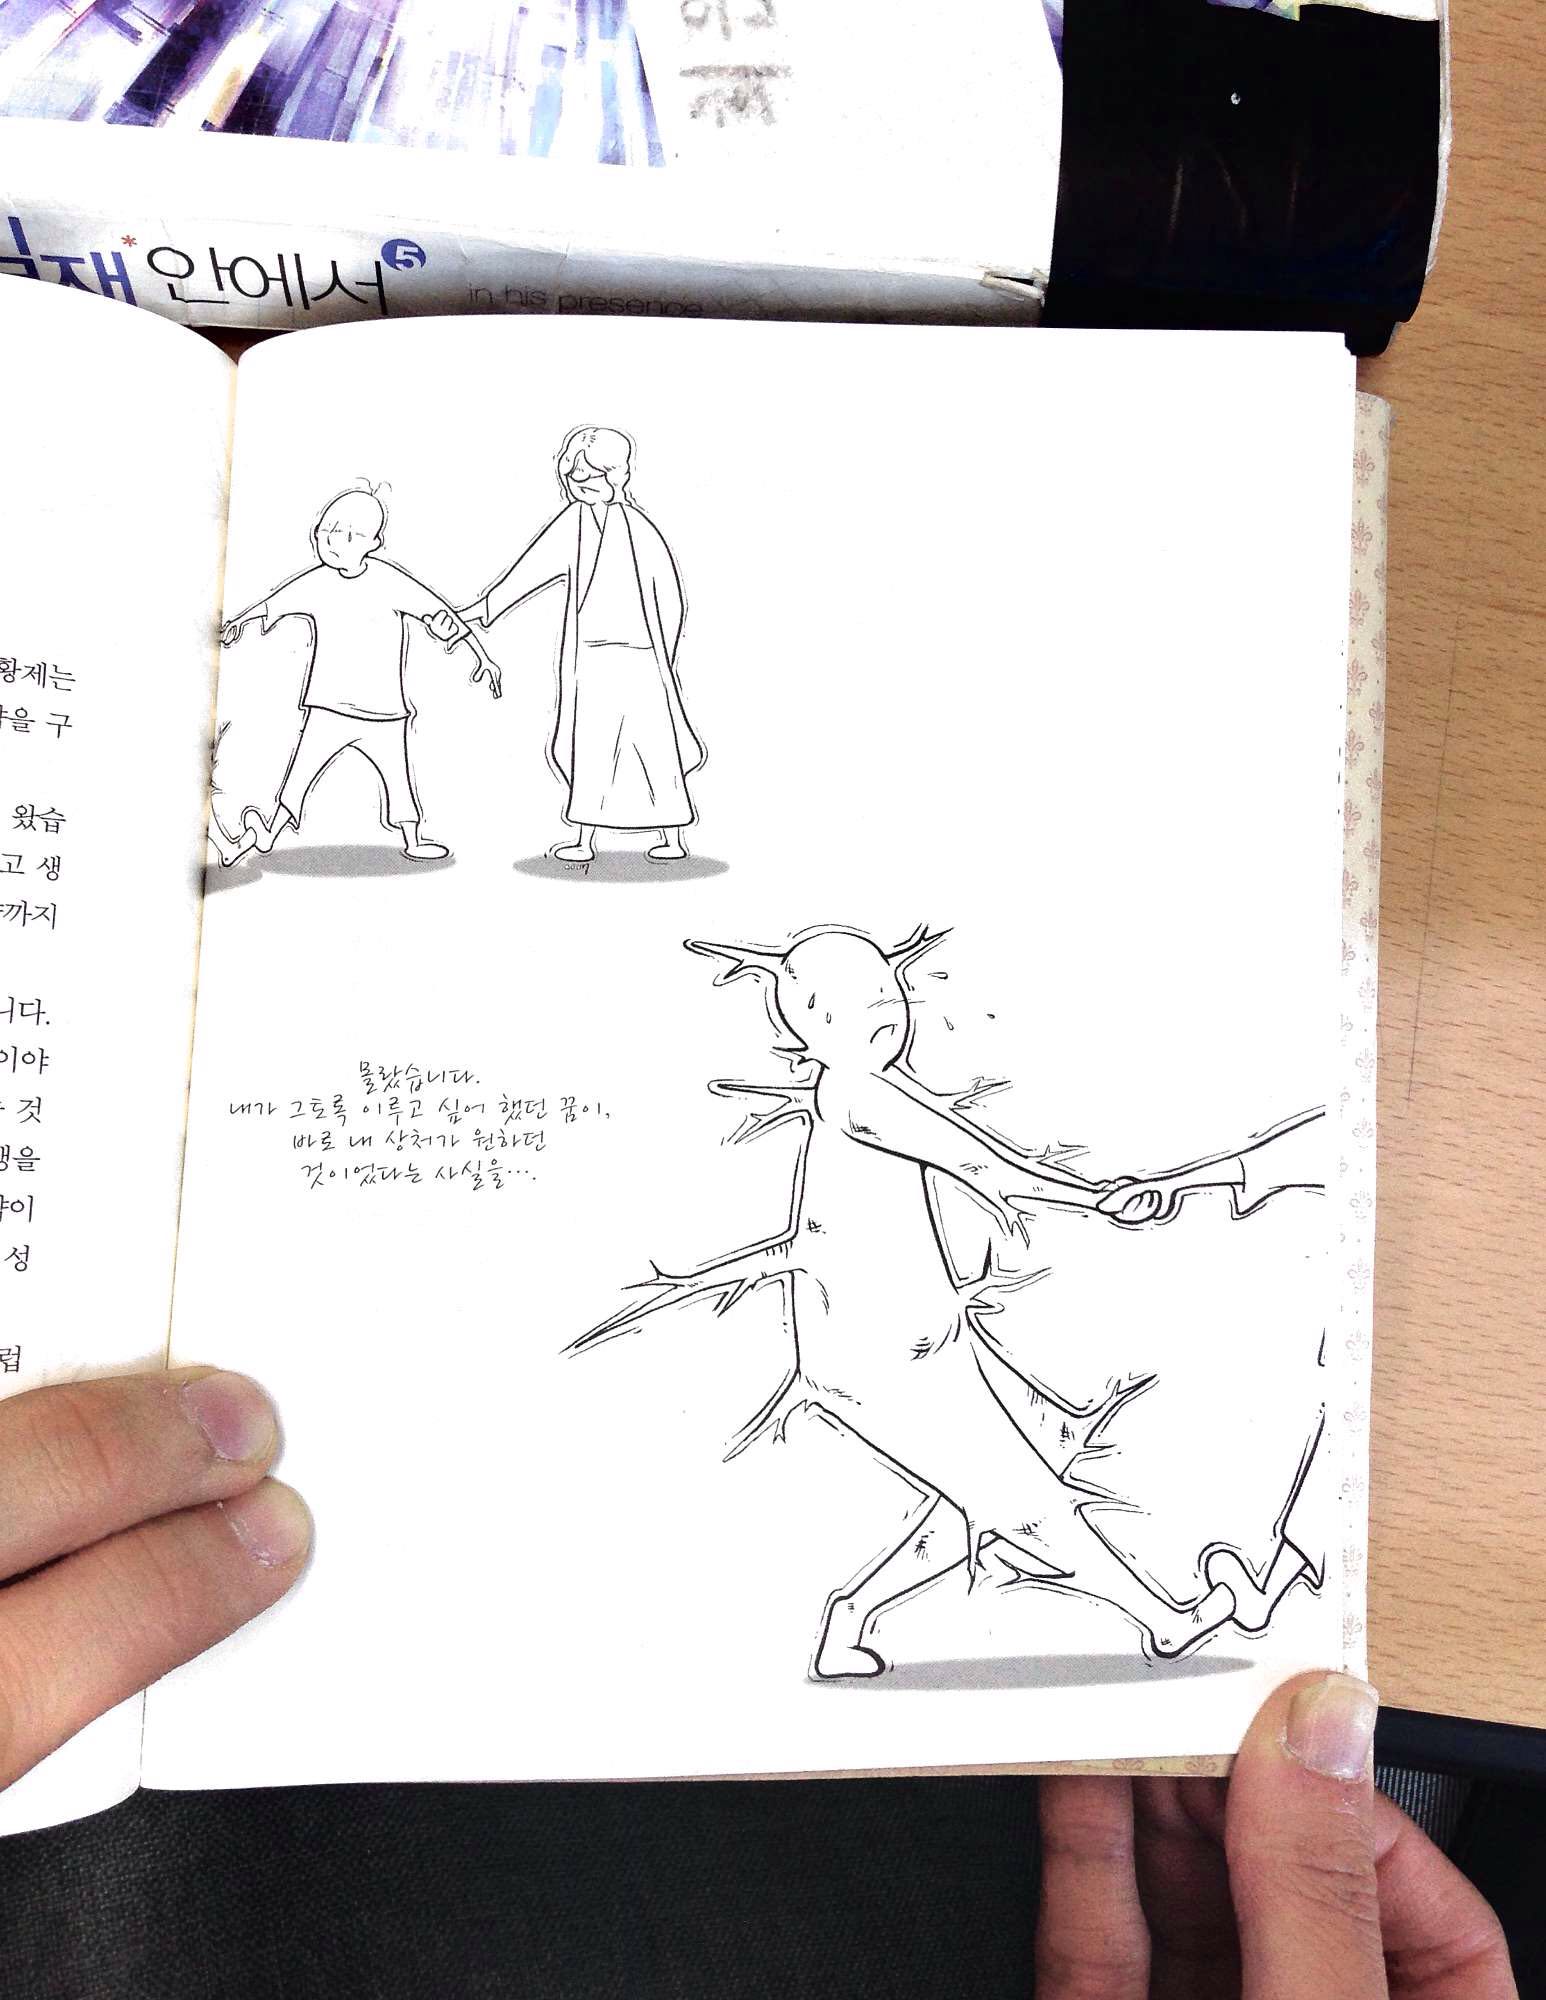 안에서 5
in his presence
황제는
을 구
왔습
고 생
까지
니다.
이야
것
생을
이
성
럼
몰랐습니다.
내가 그토록 이루고 싶어 했던 꿈이,
바로 내 상처가 원하던
것이었다는 사실을….